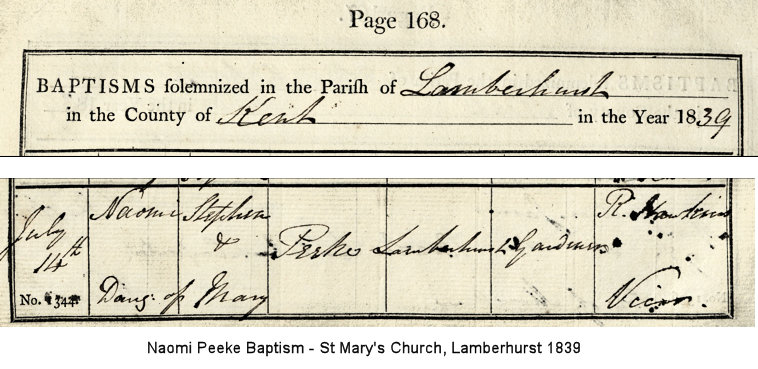 Page 168.
BAPTISMS solemnized in the Parish of Lamberhurst
in the County of Kent in the Year 1839
July
14th
No. 1344
Naomi
Daug: of
Stephen
&
Mary
Peeke
Lamberhurst
Gardener
R. Hawkins
Vicar.
Naomi Peeke Baptism - St Mary's Church, Lamberhurst 1839